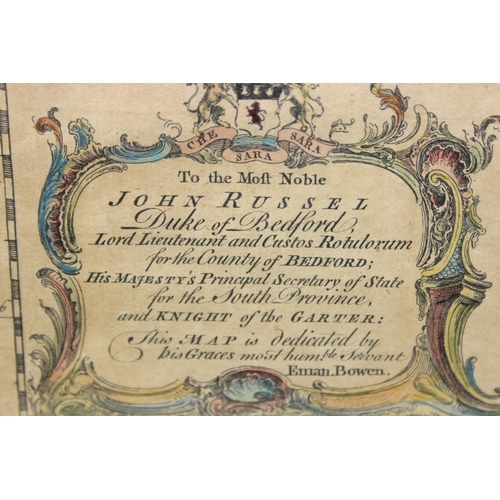 CHE SARA SARA
To the Moſt Noble
JOHN RUSSEL
Duke of Bedford,
Lord Lieutenant and Custos Rotulorum
for the County of BEDFORD;
His MAJESTY's Principal Secretary of State
for the South Province,
and KNIGHT of the GARTER:
This MAP is dedicated by
his Graces most hum.ble Servant
Eman. Bowen.
6